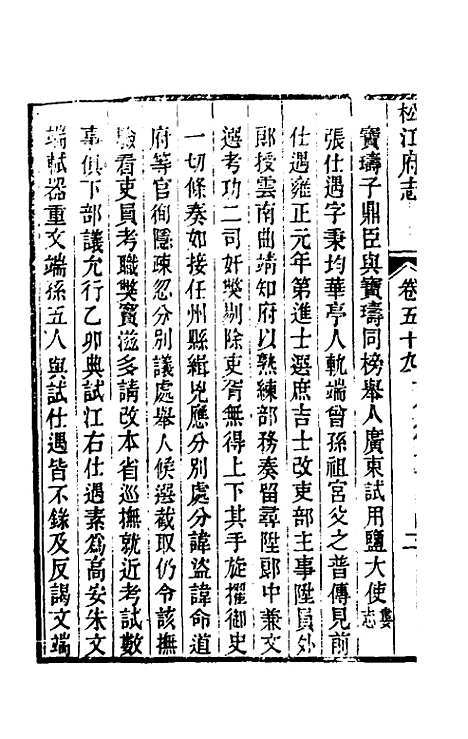 松江府志
卷五十九
寶璹子鼎臣與寶璹同榜舉人廣東試用鹽大使婁志
張仕遇字秉均華亭人軌端曾孫祖宮父之普傳見前
仕遇雍正元年第進士選庶吉士改吏部主事陞員外
郎授雲南曲靖知府以熟練部務奏留尋陞郎中兼文
選考功二司奸獘剔除吏胥無得上下其手旋擢御史
一切條奏如接任州縣緝兇應分別處分諱盜諱命道
府等官徇隱疎忽分別議處舉人候選截取仍令該撫
驗看吏員考職獘竇滋多請改本省巡撫就近考試數
事俱下部議允行乙卯典試江右仕遇素為高安朱文
端軾器重文端孫五人與試仕遇皆不錄及反謁文端